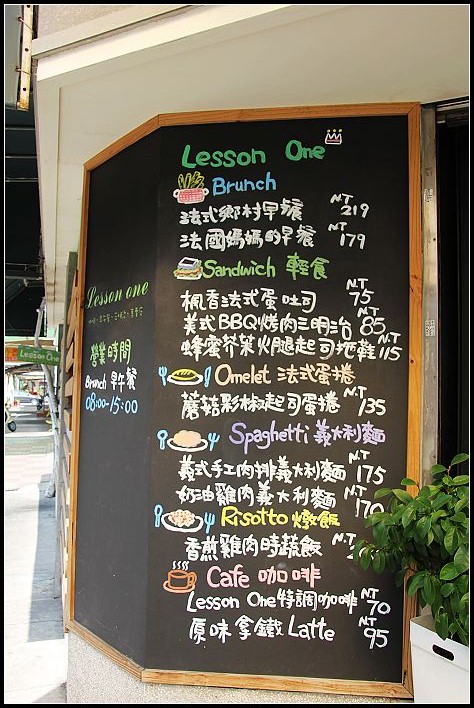 Lesson One
Brunch
法式鄉村早餐 NT 219
法國媽媽的早餐 NT 179
Sandwich 輕食
楓香法式蛋吐司 NT 75
美式BBQ烤肉三明治 NT 85
蜂蜜芥茉火腿起司拖鞋 NT 115
Omelet 法式蛋捲
蘑菇彩椒起司蛋捲 NT 135
Spaghetti 義大利麵
義式手工肉排義大利麵 NT 175
奶油雞肉義大利麵 NT 170
Risotto 燉飯
香煎雞肉時蔬飯 NT
Cafe 咖啡
Lesson One特調咖啡 NT 70
原味拿鐵 Latte NT 95
Lesson one
營業時間
Brunch 早午餐
08:00-15:00
Lesson One